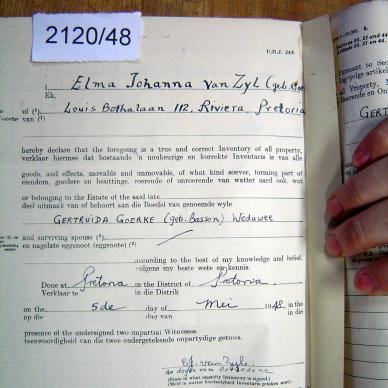 2120/48
U.D.J. 243.
I, Elma Johanna van Zyl (geb.
Ek,
of (1) Louis Bothalaan 112, Riviera, Pretoria
van (1)
hereby declare that the foregoing is a true and correct Inventory of all property,
verklaar hiermee dat bostaande 'n noukeurige en korrekte Inventaris is van alle
goods, and effects, movable and immovable, of what kind soever, forming part of
eiendom, goedere en besittings, roerende of onroerende van watter aard ook, wat
or belonging to the Estate of the said late
deel uitmaak van of behoort aan die Boedel van genoemde wyle
GERTRUIDA GOERKE (geb. Basson) Weduwee
and surviving spouse (2)
en nagelate eggenoot (eggenote) (2)
according to the best of my knowledge and belief.
volgens my beste wete en kennis.
Done at Pretoria in the District of Pretoria
Verklaar te in die Distrik
on the 5de day of Mei 1948 in the
op die day van in die
presence of the undersigned two impartial Witnesses.
teenwoordigheid van die twee ondergetekende onpartydige getuies.
E.J. van Zyl
as dogter van oorledene
(State in what capacity Inventory is signed.)
(Meld in watter hoedanigheid Inventaris geteken word.)